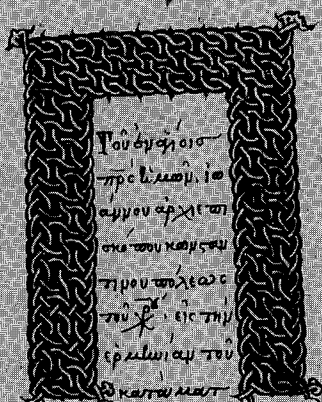 Τοῦ ἐν ἁγίοις
πρς ἡμῶν, ἰω
άννου ἀρχιεπι
σκόπου κωνσταν
τίνου πόλεως
τοῦ εἰς τὴν
ἑρμηνίαν τοῦ
κατὰ ματ